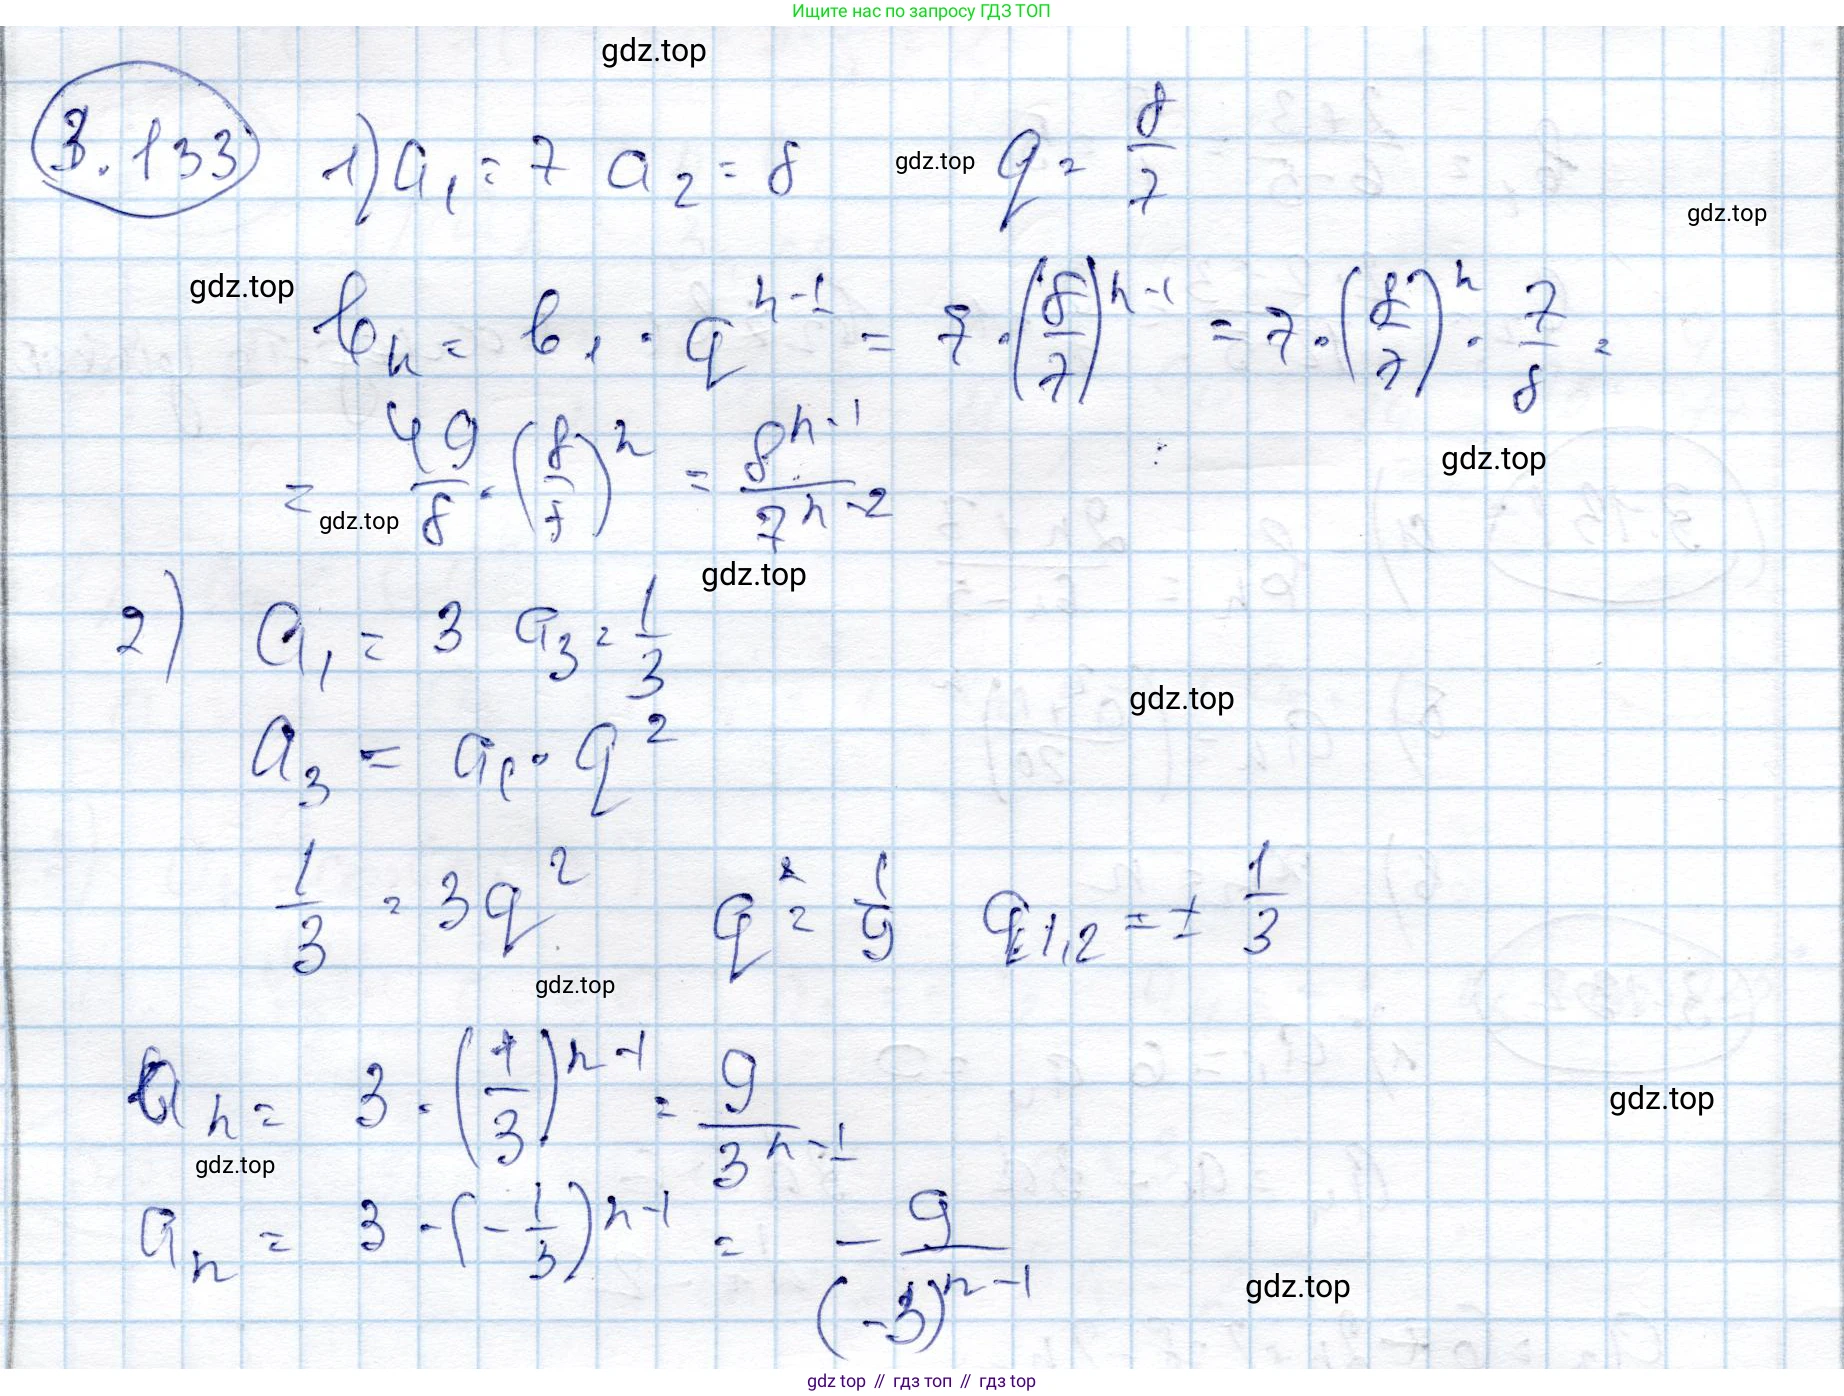 Ищите нас по запросу ГДЗ ТОП
gdz.top
3.133 1) a₁ = 7 a₂ = 8 gdz.top q = 8/7
gdz.top
gdz.top
bₙ = b₁ · q^(n-1) = 7 · (8/7)^(n-1) = 7 · (8/7)^n · 7/8 =
= 49/8 · (8/7)^n = 8^(n-1)/7^(n-2)
gdz.top
gdz.top
gdz.top
2) a₁ = 3 a₃ = 1/3
gdz.top
a₃ = a₁ · q²
1/3 = 3q² q² = 1/9 q₁,₂ = ± 1/3
gdz.top
aₙ = 3 · (1/3)^(n-1) = 9/3^(n-1)
gdz.top
gdz.top
aₙ = 3 · (-1/3)^(n-1) = - 9/(-3)^(n-1)
gdz.top
gdz top // гдз топ // гдз top